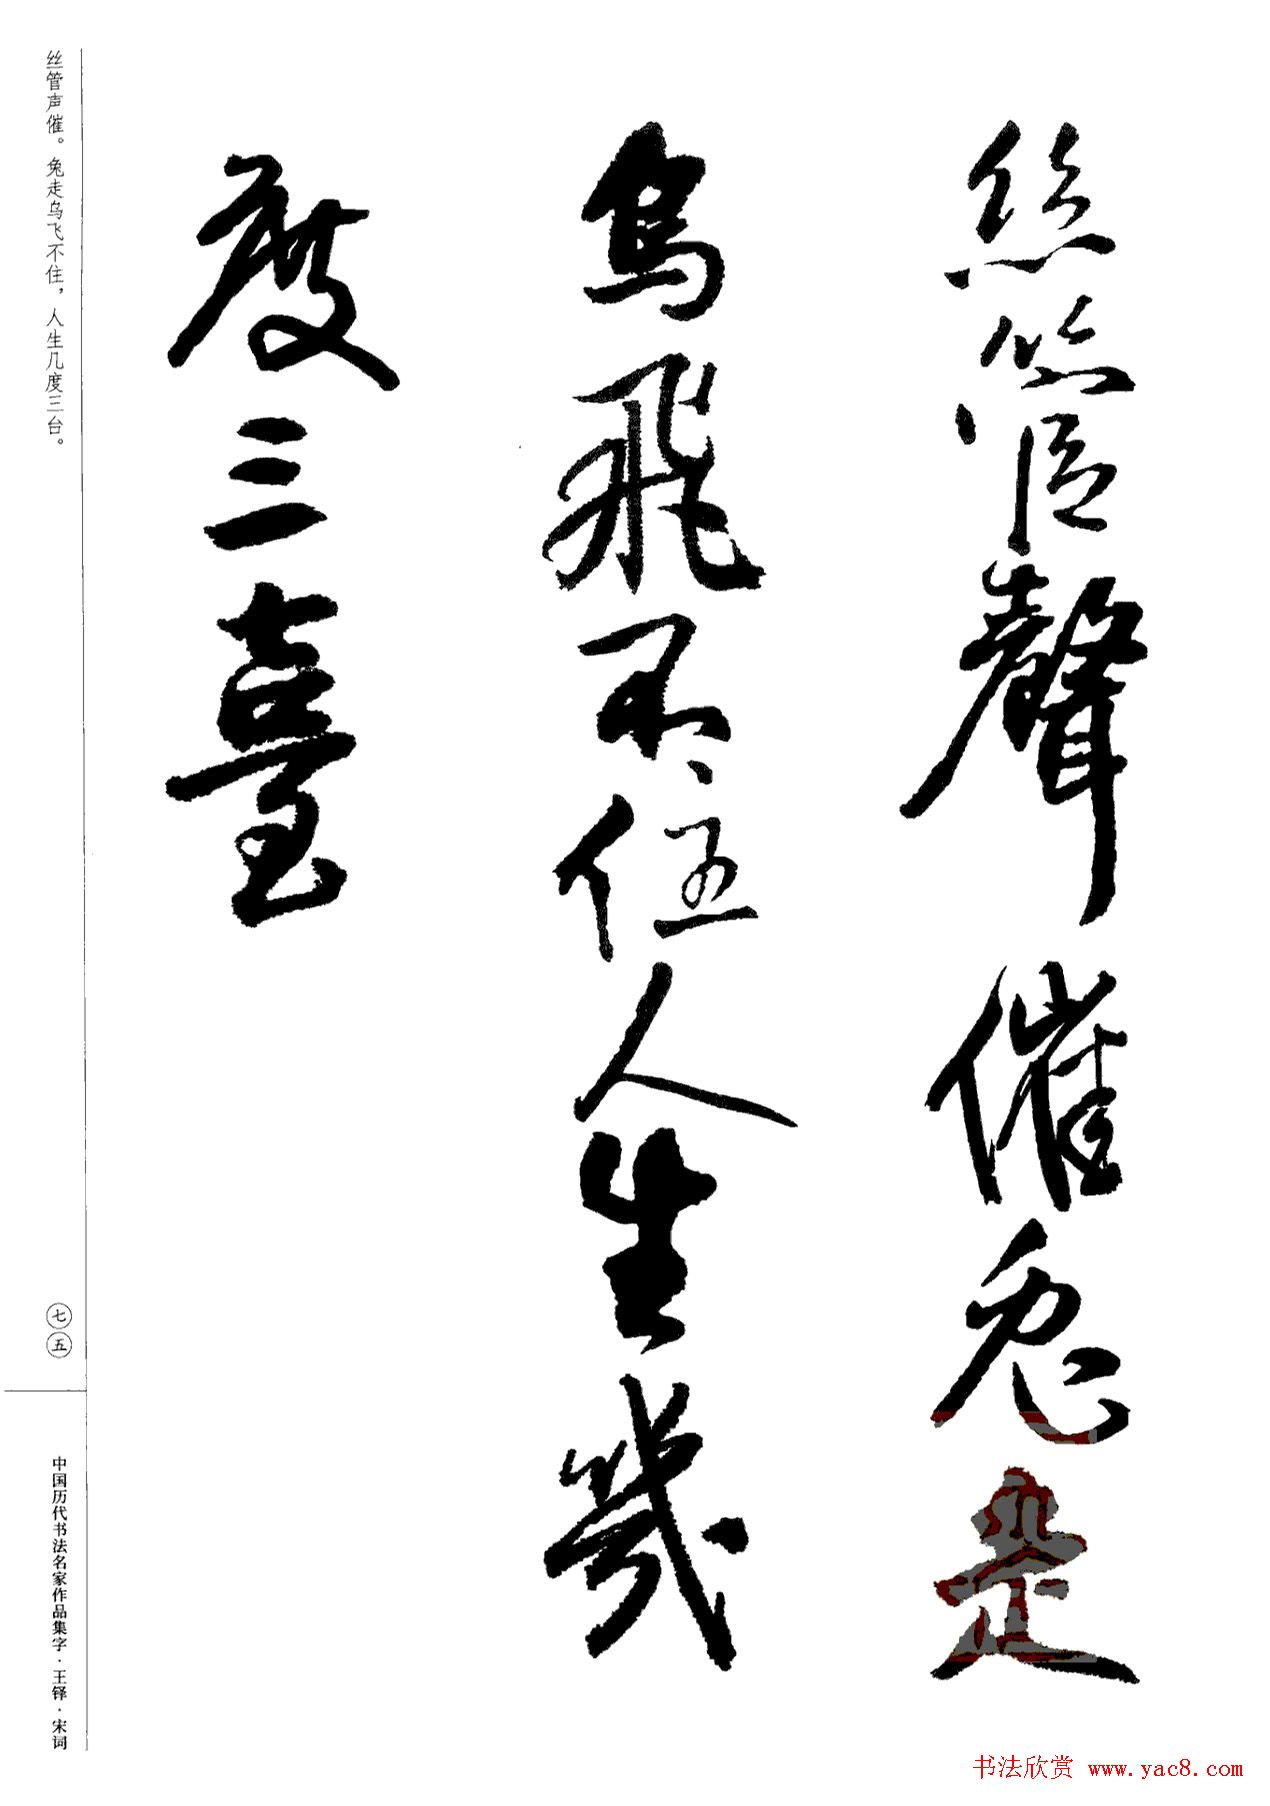 絲管聲催兔走
烏飛不住人生幾
度三臺
丝管声催。兔走乌飞不住，人生几度三台。
七五
中国历代书法名家作品集字·王铎·宋词
书法欣赏 www.yac8.com